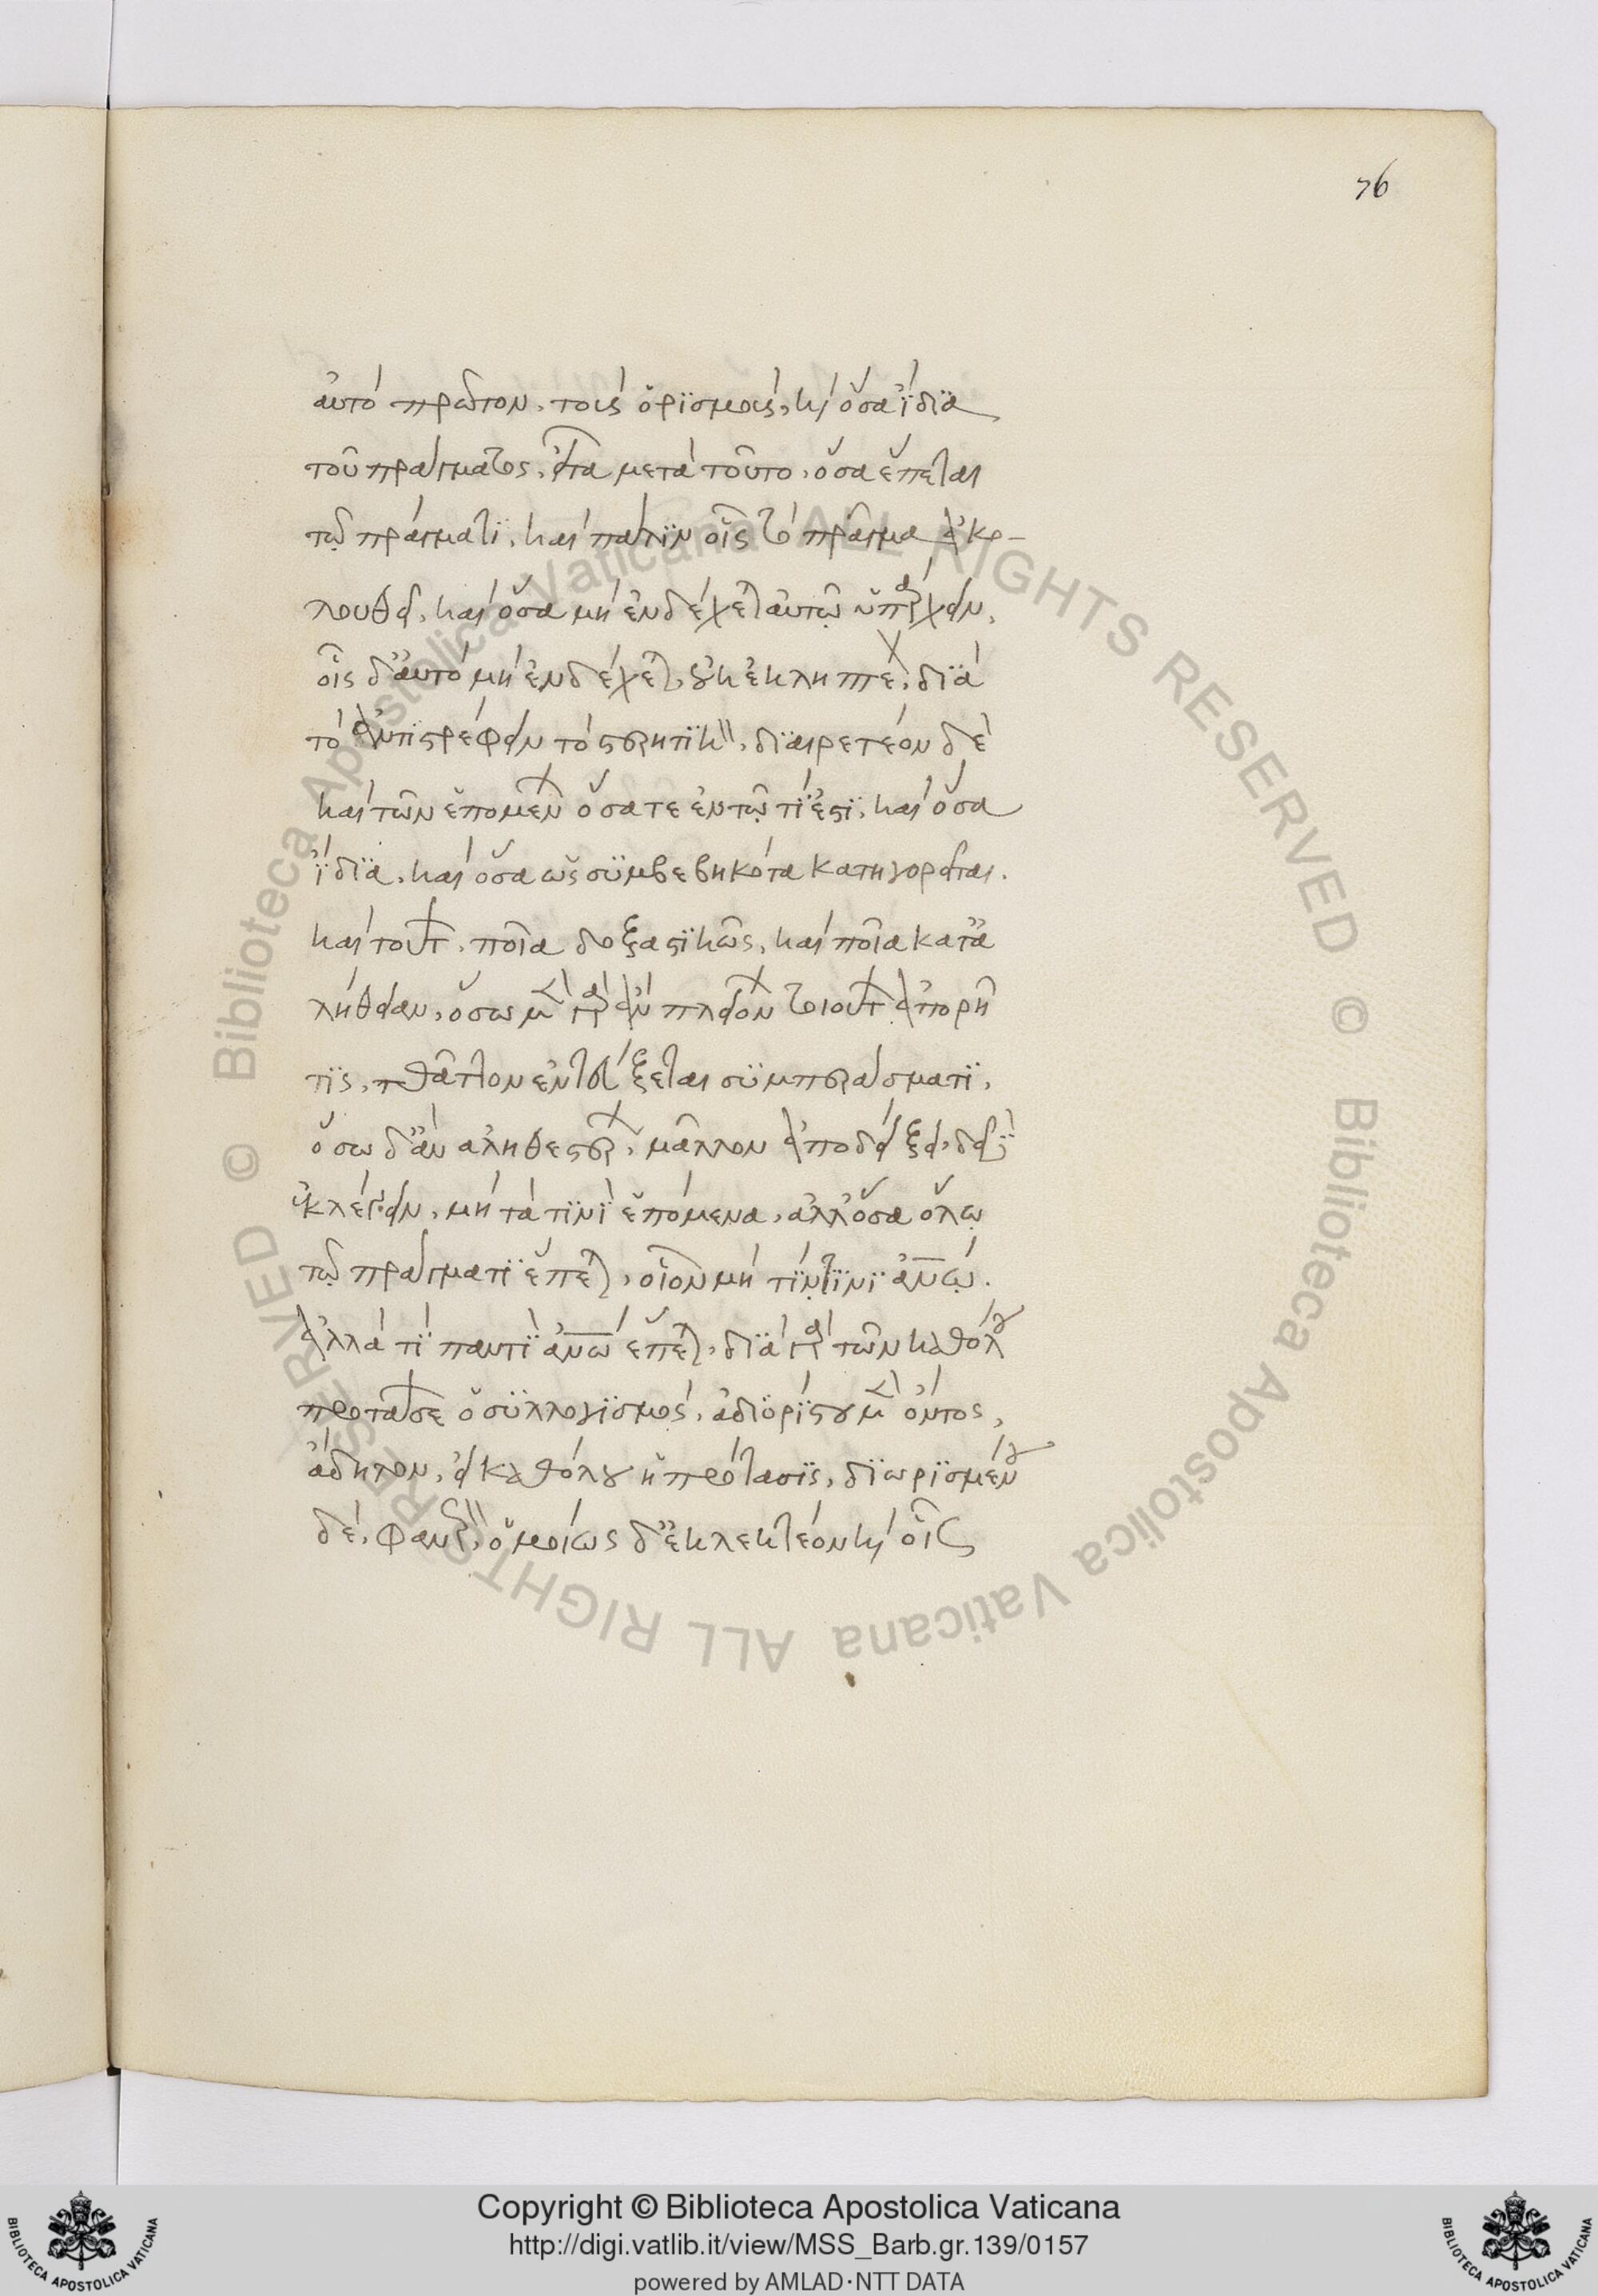 76
αὐτὸ πρῶτον, τοὺς ὁρϊσμοὺς, καὶ ὅσα ἴδϊα
τοῦ πράγματος, εἶτα μετὰ τοῦτο, ὅσα ἕπεται
τῷ πράγματϊ, καὶ πάλϊν οἷς τὸ πρᾶγμα ἀκο-
λουθεῖ, καὶ ὅσα μὴ ἐνδέχεται αὐτῷ ὑπάρχειν,
οἷς δ' αὐτὸ μὴ ἐνδέχεται, οὐκ ἐκληπτέον, δϊὰ
τὸ ἀντιστρέφειν τὸ στερητϊκόν, δϊαιρετέον δὲ
καὶ τῶν ἑπομένων ὅσα τε ἐν τῷ τί ἐστϊ, καὶ ὅσα
ἴδϊα, καὶ ὅσα ὡς σϋμβεβηκότα κατηγορεῖται.
καὶ τούτων, ποῖα δοξαστϊκῶς, καὶ ποῖα κατ' ἀ
λήθειαν, ὅσω μὲν γὰρ ἂν πλειόνων τοιούτων εὐπορῆ
τϊς, θᾶττον ἐντεύξεται σϋμπεράσματϊ,
ὅσω δ' ἂν ἀληθεστέρων, μᾶλλον ἀποδείξει, δεῖ δ'
ἐκλέγειν, μὴ τὰ τϊνὶ ἑπόμενα, ἀλλ' ὅσα ὅλω
τῷ πράγματϊ ἕπεται, οἷον μὴ τί τϊνϊ ἀνῳ.
ἀλλὰ τί παντὶ ἀνω ἕπεται, δϊὰ γὰρ τῶν καθόλου
προτάσεων ὁ σϋλλογϊσμός, ἀδϊορίστου μὲν ὄντος,
ἄδηλον, εἰ καθόλου ἡ πρότασϊς, δϊωρϊσμένου
δὲ, φανερόν, ὁμοίως δ' ἐκλεκτέον καὶ οἷς
Copyright © Biblioteca Apostolica Vaticana
http://digi.vatlib.it/view/MSS_Barb.gr.139/0157
powered by AMLAD·NTT DATA